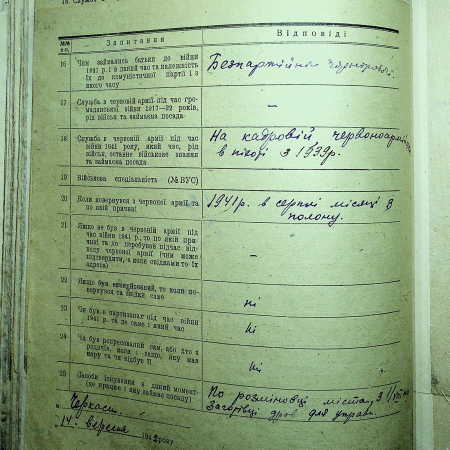 №№ п-п. Запитання Відповіді
16 Чим займались батьки до війни
1941 р. і в даний час та належність
їх до комуністичної партії і з
якого часу
Безпартійна
17 Служба в червоній армії під час гро-
мадянської війни 1917—22 років,
рід військ та займаєма посада
—
18 Служба в червоній армії під час
війни 1941 року, який час, рід
військ, останнє військове звання
та займаєма посада
На кадровій червоноармієць
в піхоті з 1939р.
19 Військова спеціальність (№ ВУС)
20 Коли повернувся з червоної армії та
по якій причині
1941 р. в серпні місяці з
полону.
21 Якщо не був в червоній армії під
час війни 1941 р., то по якій при-
чині та де перебував підчас від-
ходу червоної армії (чим може
підтвердити, а коли свідками то їх
адреса)
—
22 Якщо був евакуйований, то коли по-
вернувся та звідки саме
ні
23 Чи був в партизанах під час війни
1941 р. та де саме і який час
ні
24 Чи був репресований сам, або хто з
родичів, коли і защо, яку мав
кару та чи відбув її
ні
25 Засоби існування в даний момент
(де працює і яку займає посаду)
По розміновці міста, з
Загорівці дров для управи.
Черкаси.
14 вересня 1942 року